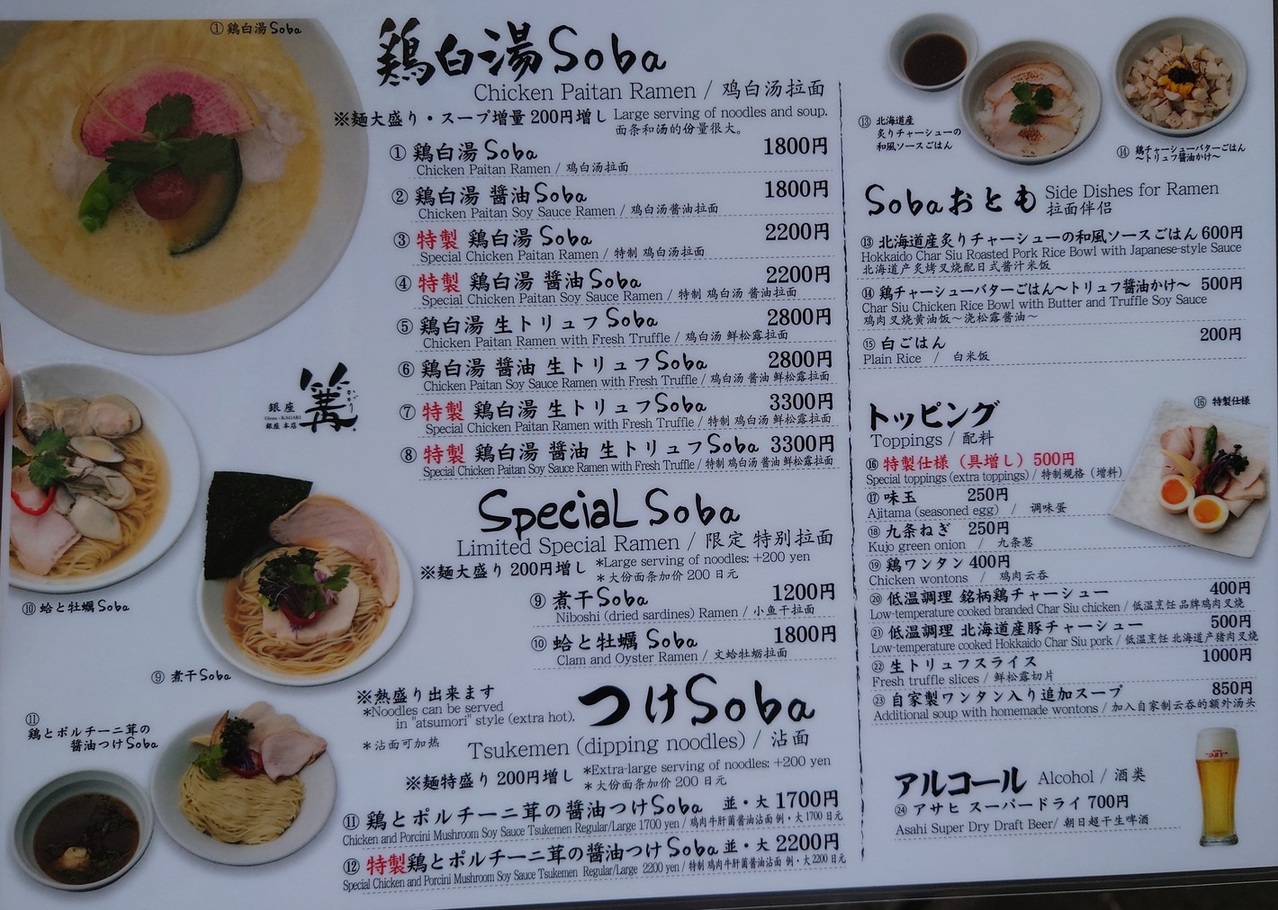 ① 鶏白湯Soba
鶏白湯Soba
Chicken Paitan Ramen / 鸡白汤拉面
※麺大盛り・スープ増量 200円増し Large serving of noodles and soup.
面条和汤的份量很大。
① 鶏白湯 Soba 1800円
Chicken Paitan Ramen / 鸡白汤拉面
② 鶏白湯 醤油Soba 1800円
Chicken Paitan Soy Sauce Ramen / 鸡白汤酱油拉面
③ 特製 鶏白湯 Soba 2200円
Special Chicken Paitan Ramen / 特制 鸡白汤拉面
④ 特製 鶏白湯 醤油Soba 2200円
Special Chicken Paitan Soy Sauce Ramen / 特制 鸡白汤 酱油拉面
⑤ 鶏白湯 生トリュフSoba 2800円
Chicken Paitan Ramen with Fresh Truffle / 鸡白汤 鲜松露拉面
⑥ 鶏白湯 醤油 生トリュフSoba 2800円
Chicken Paitan Soy Sauce Ramen with Fresh Truffle / 鸡白汤 酱油 鲜松露拉面
⑦ 特製 鶏白湯 生トリュフSoba 3300円
Special Chicken Paitan Ramen with Fresh Truffle / 特制 鸡白汤 鲜松露拉面
⑧ 特製 鶏白湯 醤油 生トリュフSoba 3300円
Special Chicken Paitan Soy Sauce Ramen with Fresh Truffle / 特制 鸡白汤 酱油 鲜松露拉面
銀座
Ginza - KAGARI
銀座 本店
篝
かがり
Special Soba
Limited Special Ramen / 限定 特别拉面
※麺大盛り 200円増し *Large serving of noodles: +200 yen
*大份面条加价 200 日元
⑨ 煮干Soba 1200円
Niboshi (dried sardines) Ramen / 小鱼干拉面
⑩ 蛤と牡蠣 Soba 1800円
Clam and Oyster Ramen / 文蛤牡蛎拉面
⑩ 蛤と牡蠣Soba
⑨ 煮干Soba
⑪
鶏とポルチーニ茸の
醤油つけSoba
※熱盛り出来ます
*Noodles can be served
in "atsumori" style (extra hot).
*沾面可加热
つけSoba
Tsukemen (dipping noodles) / 沾面
※麺特盛り 200円増し *Extra-large serving of noodles: +200 yen
*大份面条加价 200 日元
⑪ 鶏とポルチーニ茸の醤油つけSoba 並・大 1700円
Chicken and Porcini Mushroom Soy Sauce Tsukemen Regular/Large 1700 yen / 鸡肉牛肝菌酱油沾面 例・大 1700 日元
⑫ 特製鶏とポルチーニ茸の醤油つけSoba 並・大 2200円
Special Chicken and Porcini Mushroom Soy Sauce Tsukemen Regular/Large 2200 yen / 特制 鸡肉牛肝菌酱油沾面 例・大 2200 日元
⑬ 北海道産
炙りチャーシューの
和風ソースごはん
⑭ 鶏チャーシューバターごはん
～トリュフ醤油かけ～
Sobaおとも Side Dishes for Ramen
拉面伴侣
⑬ 北海道産炙りチャーシューの和風ソースごはん 600円
Hokkaido Char Siu Roasted Pork Rice Bowl with Japanese-style Sauce
北海道产炙烤叉烧配日式酱汁米饭
⑭ 鶏チャーシューバターごはん～トリュフ醤油かけ～ 500円
Char Siu Chicken Rice Bowl with Butter and Truffle Soy Sauce
鸡肉叉烧黄油饭～浇松露酱油～
⑮ 白ごはん 200円
Plain Rice / 白米饭
トッピング
Toppings / 配料
⑯ 特製仕様
⑯ 特製仕様（具増し）500円
Special toppings (extra toppings) / 特制规格（增料）
⑰ 味玉 250円
Ajitama (seasoned egg) / 调味蛋
⑱ 九条ねぎ 250円
Kujo green onion / 九条葱
⑲ 鶏ワンタン 400円
Chicken wontons / 鸡肉云吞
⑳ 低温調理 銘柄鶏チャーシュー 400円
Low-temperature cooked branded Char Siu chicken / 低温烹饪 品牌鸡肉叉烧
㉑ 低温調理 北海道産豚チャーシュー 500円
Low-temperature cooked Hokkaido Char Siu pork / 低温烹饪 北海道产猪肉叉烧
㉒ 生トリュフスライス 1000円
Fresh truffle slices / 鲜松露切片
㉓ 自家製ワンタン入り追加スープ 850円
Additional soup with homemade wontons / 加入自家制云吞的额外汤头
アルコール Alcohol / 酒类
㉔ アサヒ スーパードライ 700円
Asahi Super Dry Draft Beer/ 朝日超干生啤酒